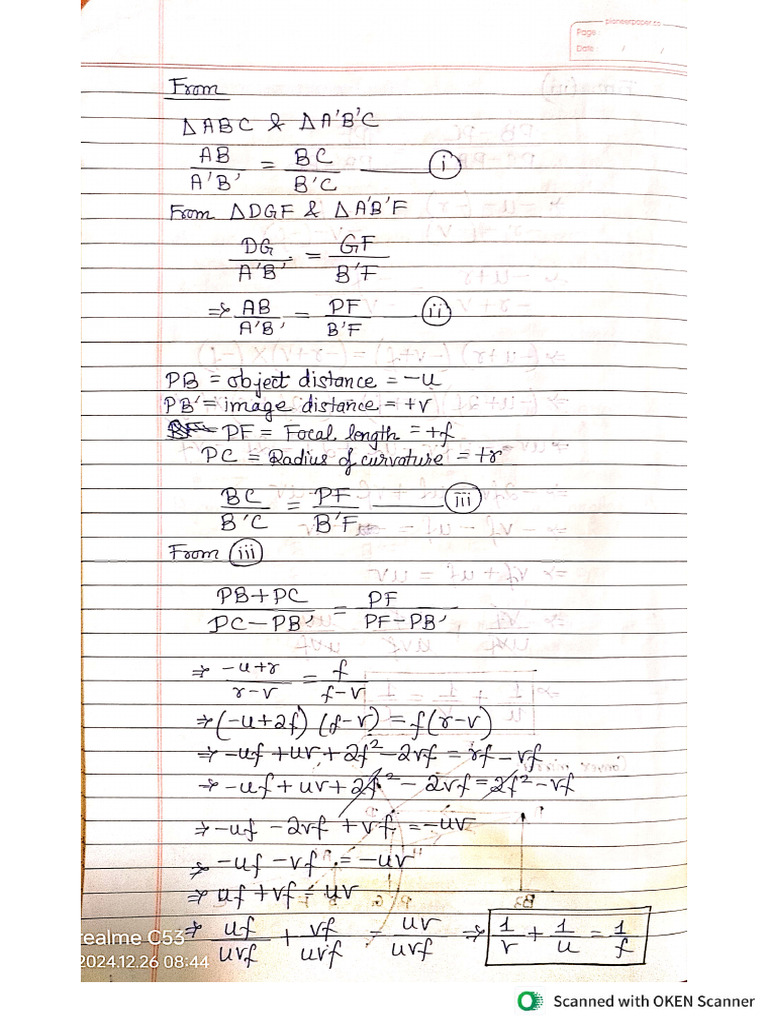 pioneerpaper.co
Page
Date / /
From
△ABC & △A'B'C
AB/A'B' = BC/B'C —— (i)
From △DGF & △A'B'F
DG/A'B' = GF/B'F
⇒ AB/A'B' = PF/B'F (ii)
PB = object distance = -u
PB' = image distance = +v
PF = Focal length = +f
PC = Radius of curvature = +r
BC/B'C = PF/B'F —— (iii)
From (iii)
PB+PC/PC-PB' = PF/PF-PB'
⇒ -u+r/r-v = f/f-v
⇒ (-u+2f) (f-v) = f(r-v)
⇒ -uf +uv + 2f² - 2vf = rf - vf
⇒ -uf + uv + 2f² - 2vf = 2f² - vf
⇒ -uf - 2vf + vf = -uv
⇒ -uf - vf = -uv
⇒ uf + vf = uv
⇒ uf/uvf + vf/uvf = uv/uvf ⇒ 1/v + 1/u = 1/f
realme C53
2024.12.26 08:44
Scanned with OKEN Scanner